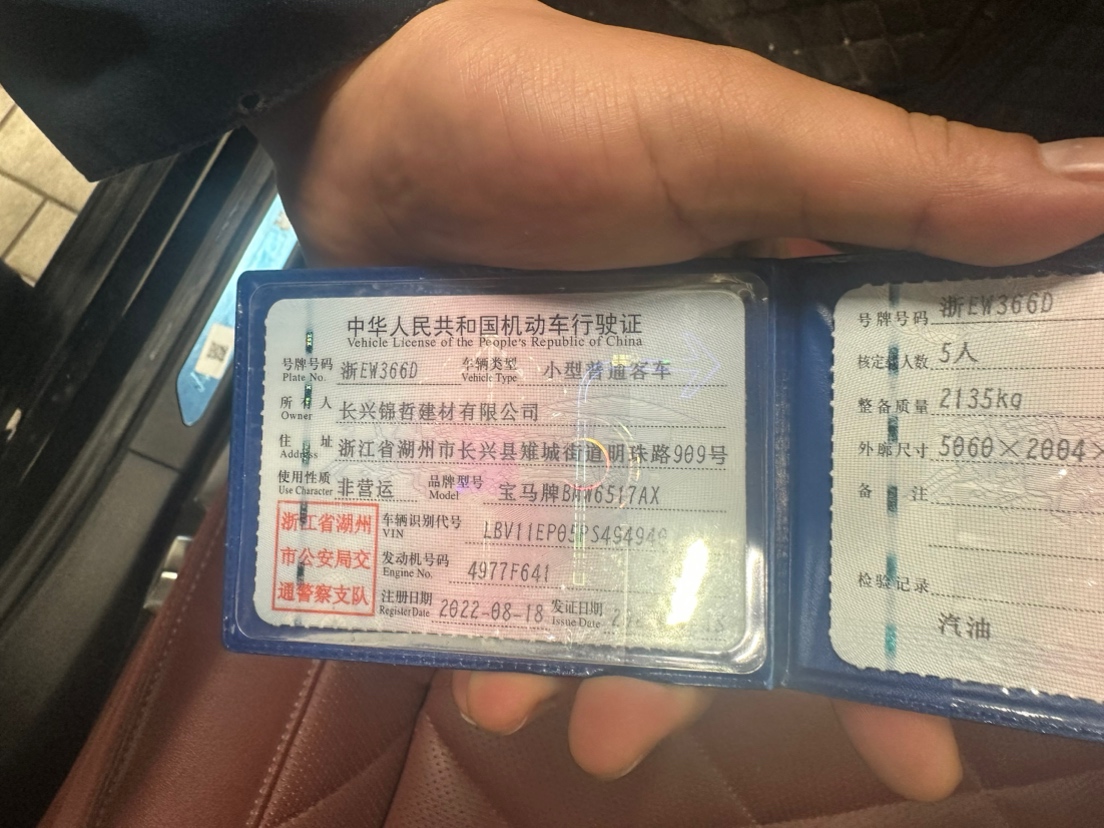 中华人民共和国机动车行驶证
Vehicle License of the People's Republic of China
号牌号码 浙EW366D 车辆类型 小型普通客车
Plate No. Vehicle Type
所有人 长兴锦哲建材有限公司
Owner
住址 浙江省湖州市长兴县雉城街道明珠路909号
Address
使用性质 非营运 品牌型号 宝马牌BMW6517AX
Use Character Model
浙江省湖州
市公安局交
通警察支队
车辆识别代号
VIN
发动机号码 4977F641
Engine No.
注册日期 2022-08-18 发证日期
Register Date Issue Date
号牌号码 浙EW366D
核定载人数 5人
整备质量 2135kg
外廓尺寸 5060×2004×
备注
检验记录
汽油